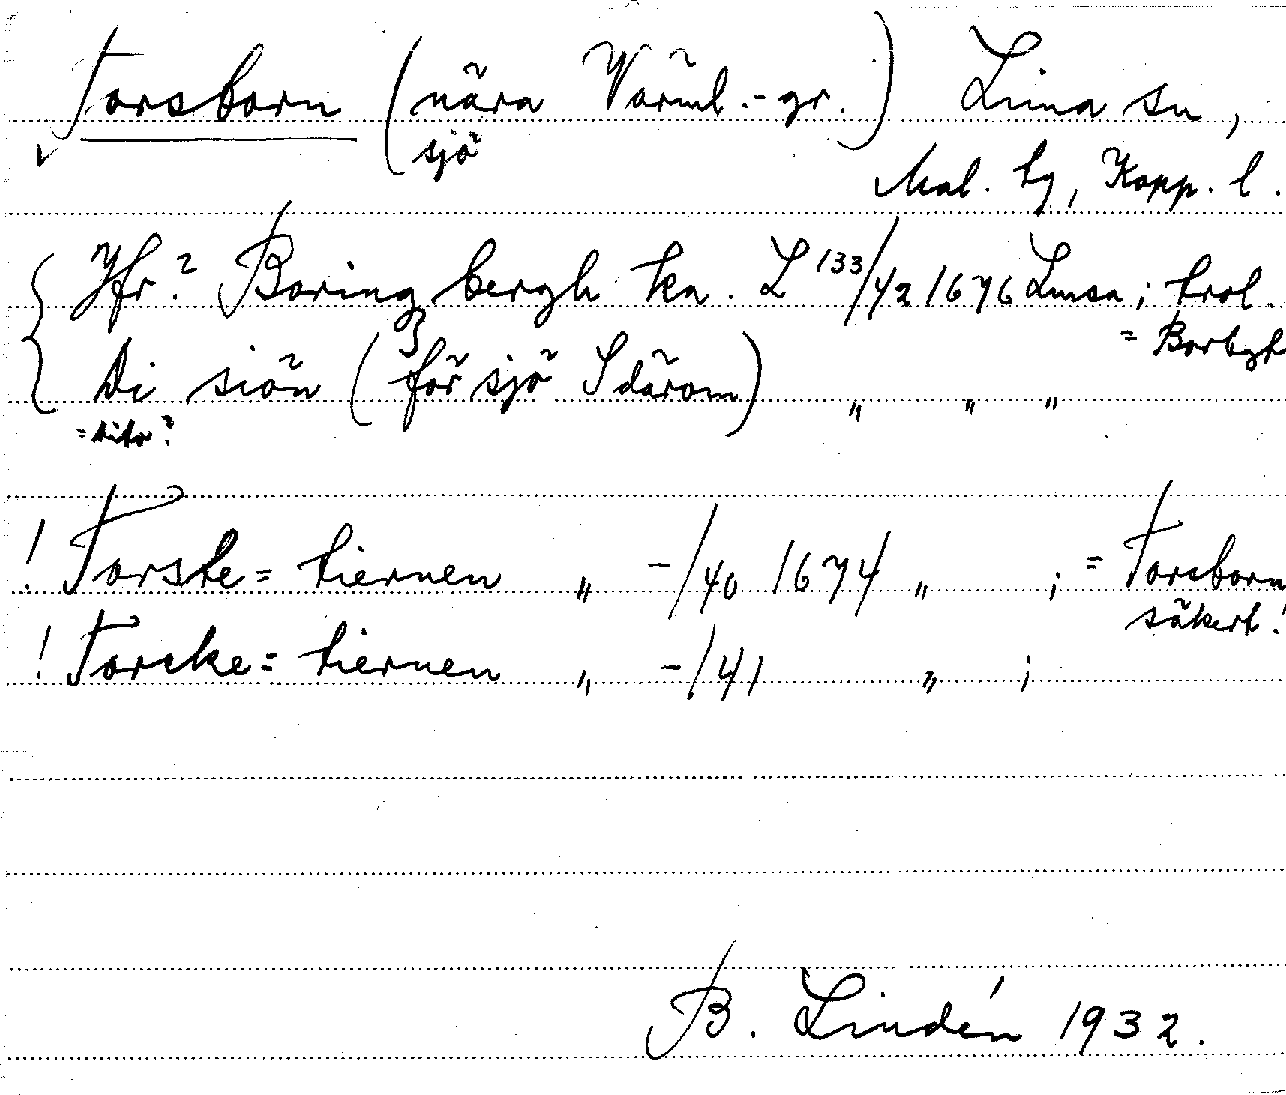 Torsborn (nära Värml.-gr.) Lima sn,
sjö
Mal. tg, Kopp. l.
Jfr? Boring bergh ka. L 133/42 1676 Limsa; trol.
= Borbgt
Di siön (för sjö S därom) " " "
! Torste=tiernen " -/40 1674 " ; = Torsborn
säkert!
! Torske=tiernen " -/41 " ;
B. Lindén 1932.